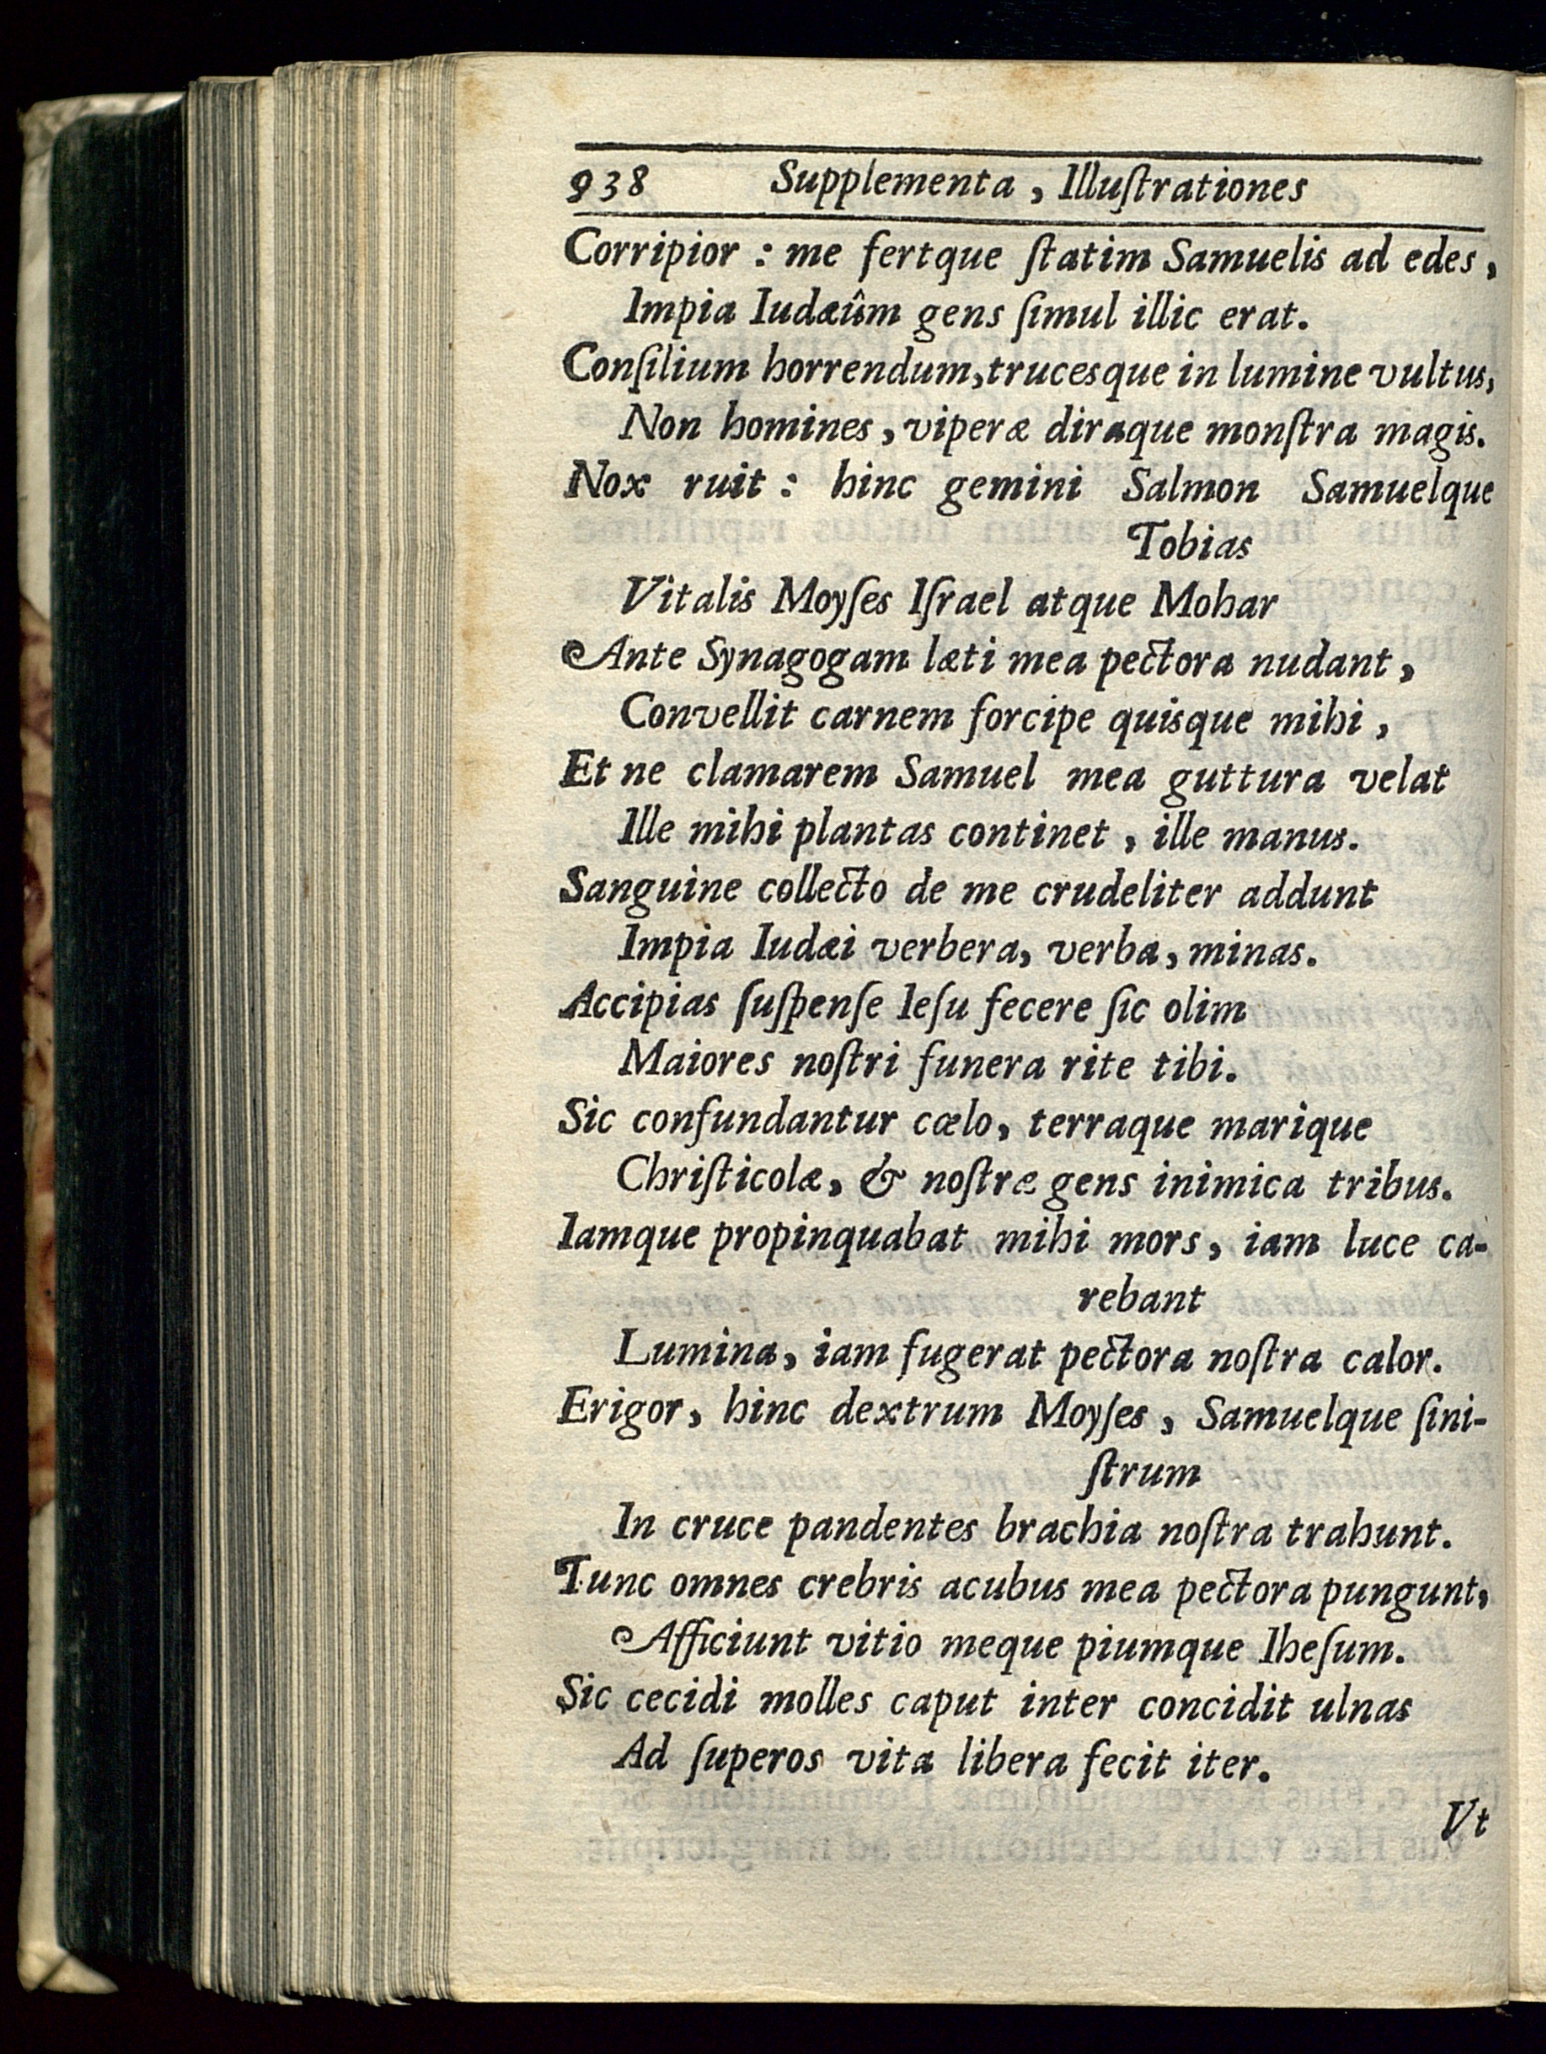 938 Supplementa, Illuſtrationes
Corripior: me fertque ſtatim Samuelis ad edes,
Impia Iudæûm gens ſimul illic erat.
Conſilium horrendum, trucesque in lumine vultus,
Non homines, viperæ diraque monſtra magis.
Nox ruit: hinc gemini Salmon Samuelque
Tobias
Vitalis Moyſes Iſrael atque Mohar
Ante Synagogam læti mea pectora nudant,
Convellit carnem forcipe quisque mihi,
Et ne clamarem Samuel mea guttura velat
Ille mihi plantas continet, ille manus.
Sanguine collecto de me crudeliter addunt
Impia Iudæi verbera, verba, minas.
Accipias ſuſpenſe Ieſu fecere ſic olim
Maiores noſtri funera rite tibi.
Sic confundantur cœlo, terraque marique
Chriſticolæ, & noſtræ gens inimica tribus.
Iamque propinquabat mihi mors, iam luce ca-
rebant
Lumina, iam fugerat pectora noſtra calor.
Erigor, hinc dextrum Moyſes, Samuelque ſini-
ſtrum
In cruce pandentes brachia noſtra trahunt.
Tunc omnes crebris acubus mea pectora pungunt,
Afficiunt vitio meque piumque Iheſum.
Sic cecidi molles caput inter concidit ulnas
Ad ſuperos vita libera fecit iter.
Vt